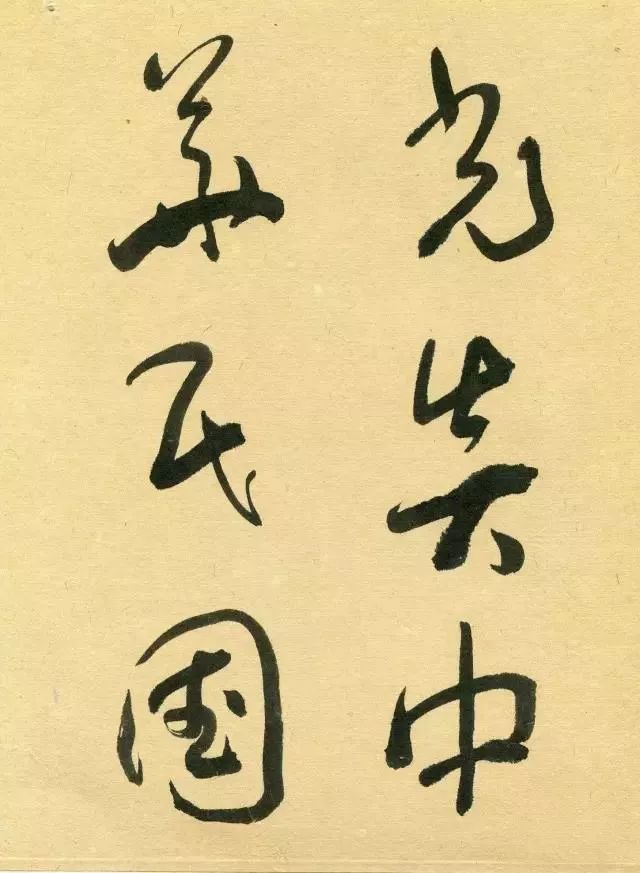 光中
華民國